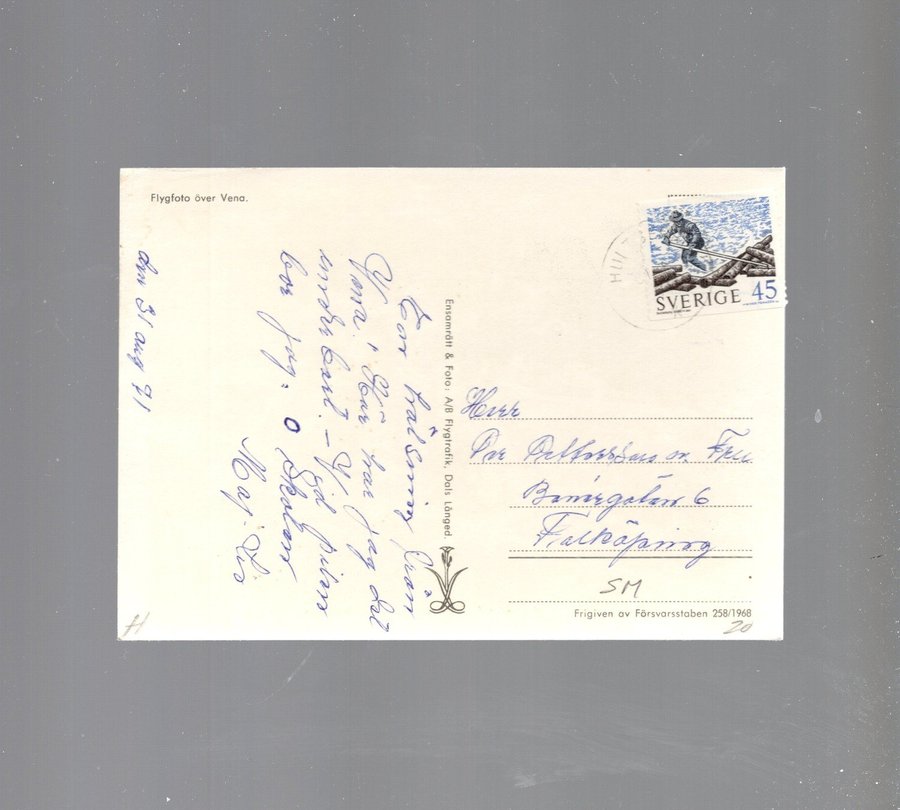 Flygfoto över Vena.
SVERIGE 45
HULT
den 31 aug 71
En hälsning från
Vena. Här har jag det
underbart. – Vid pilen
bor jag: O Skalare
Maj-Lis
Ensamrätt & Foto: A/B Flygtrafik, Dals Långed.
Herr
Per o. Fru
Banérgatan 6
Falköping
SM
Frigiven av Försvarsstaben 258/1968
H
20